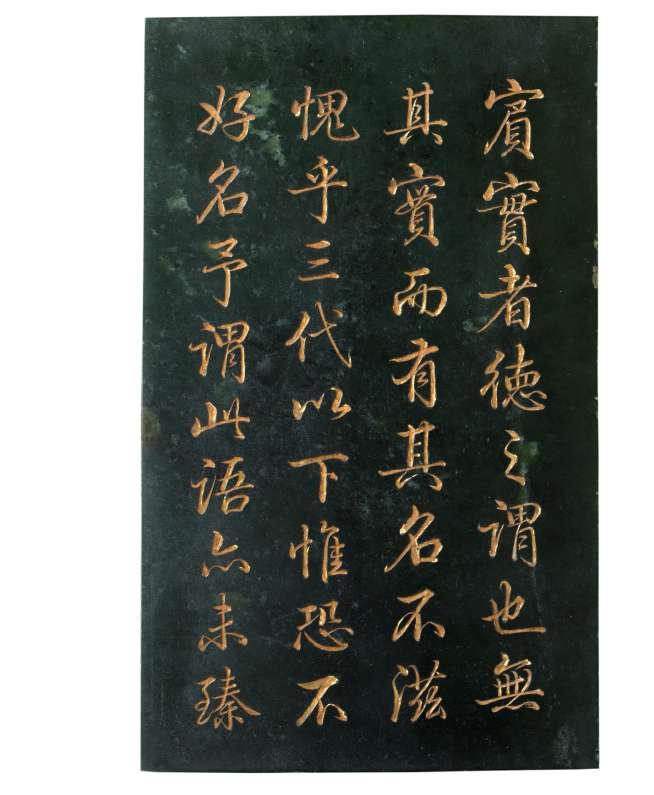 賓實者德之謂也無
其實而有其名不滋
愧乎三代以下惟恐不
好名予謂此語亦未臻